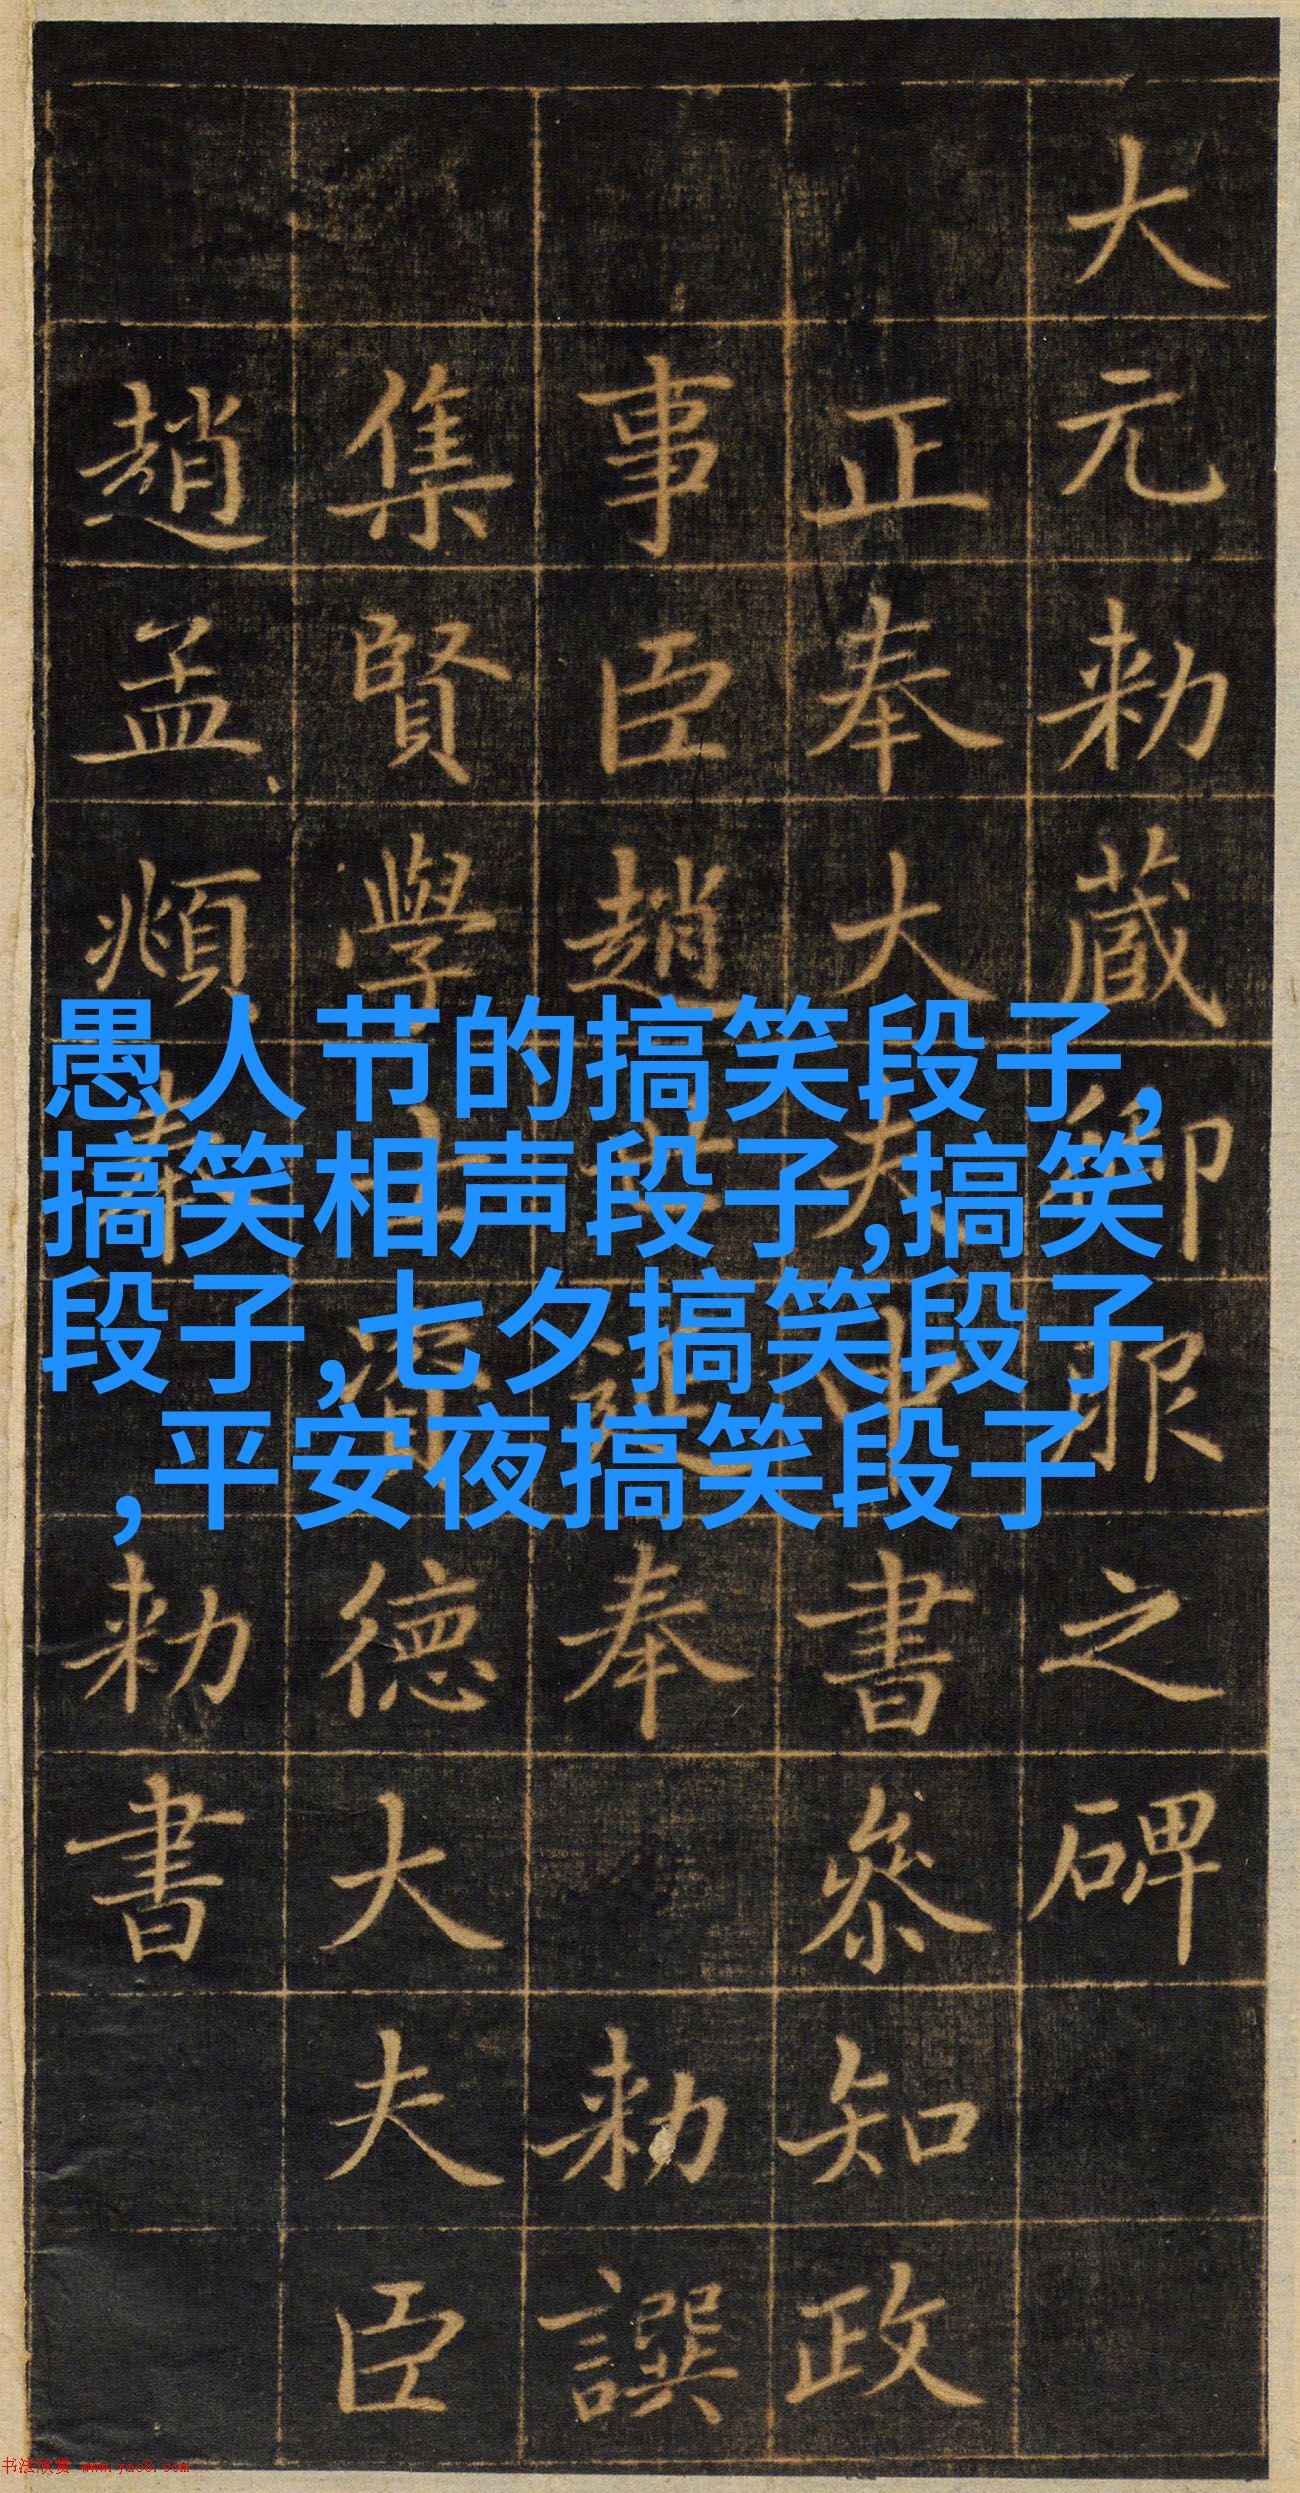 大元勅藏御服之碑
正奉大夫中書叅知政
事臣趙世延奉勅譔
集賢學士資德大夫臣
趙孟頫奉勅書
愚人节的搞笑段子,
搞笑相声段子,搞笑
段子,七夕搞笑段子
,平安夜搞笑段子
书法欣赏 www.yac8.com